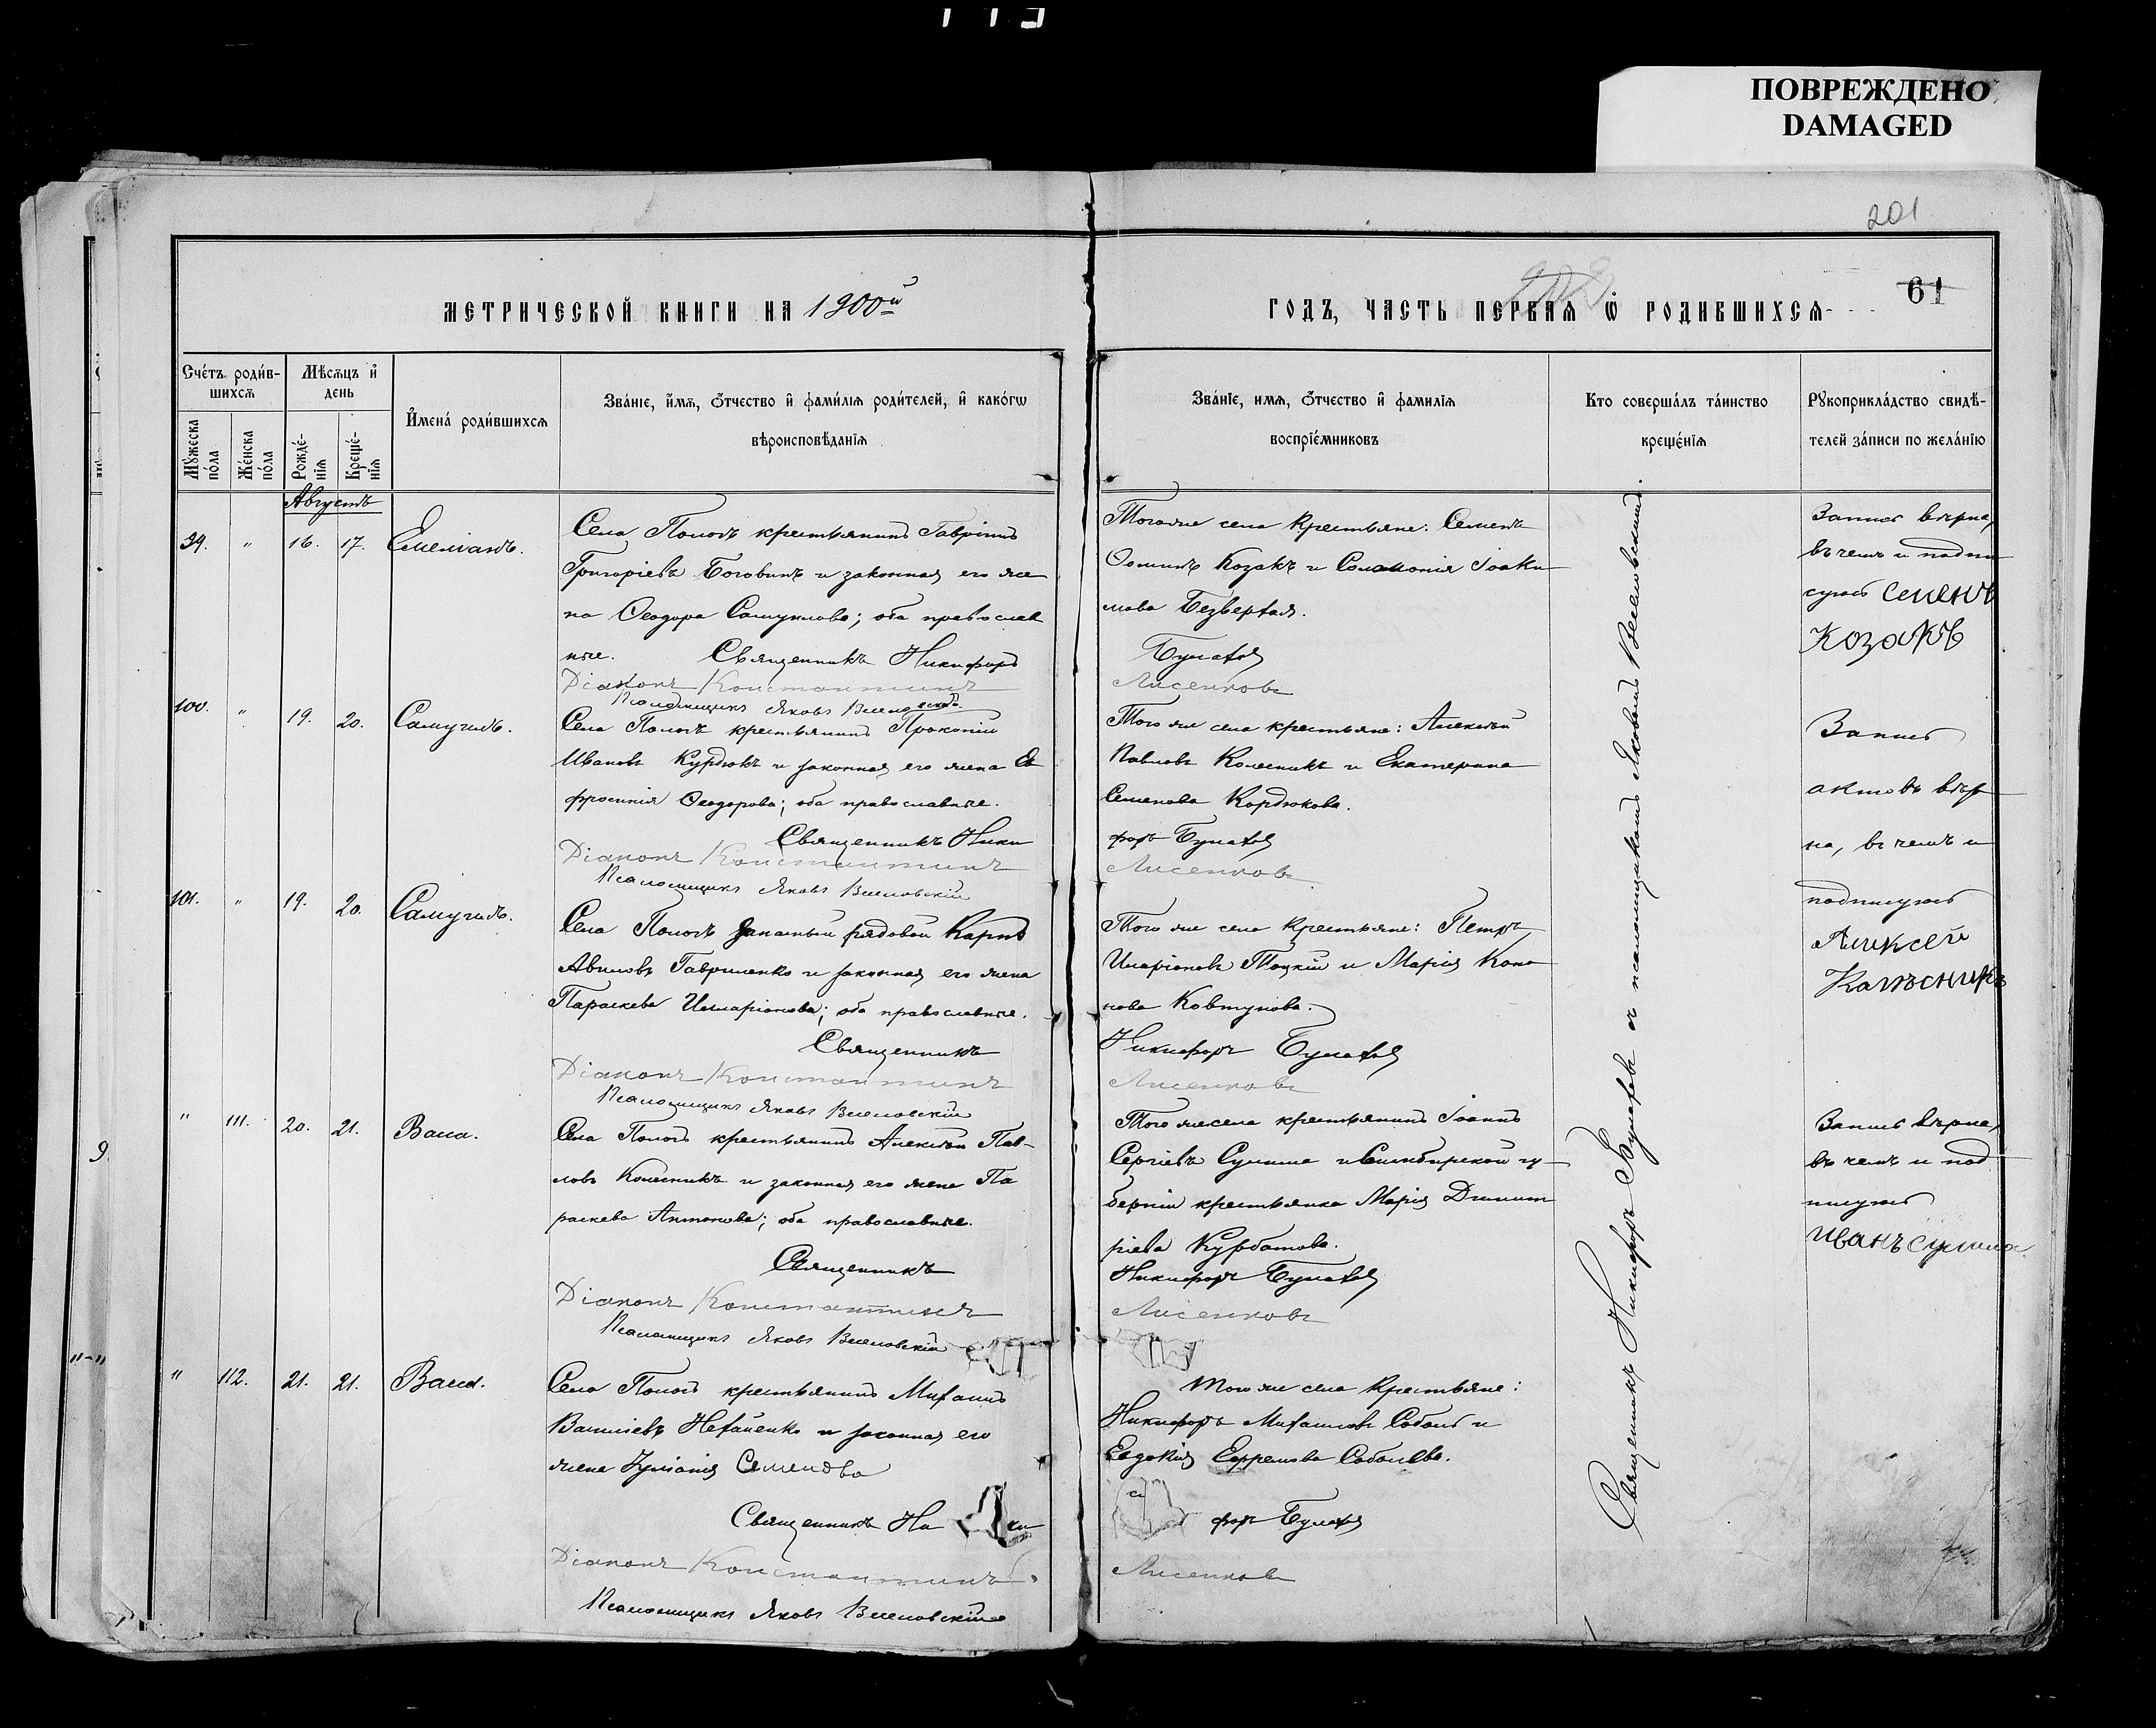 ПОВРЕЖДЕНО
DAMAGED
201
61
МЕТРИЧЕСКОЙ КНИГИ НА 1900й
ГОДЪ, ЧАСТЬ ПЕРВАЯ Ѿ РОДИВШИХСЯ
Счётъ роди́вшихсѧ
Мѣ́сѧцъ и҆ день
Мꙋ́жеска по́ла
Же́нска по́ла
Рожде́нїѧ
Креще́нїѧ
И҆мена̀ роди́вшихсѧ
Зва́нїе, и҆́мѧ, ѻ҆́тчество и҆ фами́лїѧ роди́телей, и҆ како́гѡ
вѣроисповѣ́данїѧ
Зва́нїе, имѧ, ѻ҆́тчество и҆ фамилїѧ
воспрїе́мниковъ
Кто соверша́лъ та́инство
креще́нїѧ
Рꙋкоприкла́дство свидѣ́-
телей за́писи по жела́нїю
Августъ
39. " 16. 17. Емеліанъ.
Села Пологъ крестьянинъ Гавріилъ
Григоріевъ Боговинъ и законная его же
на Ѳеодора Самуилова; оба православ
ные. Священникъ Никифоръ
Діаконъ Константинъ
Псаломщикъ Яковъ Веселовскій
Тогоже села крестьяне: Семенъ
Ѳоминъ Козакъ и Соломонія Іоаки
мова Безвертая.
Булатов
Лисенковъ
Запись вѣрна,
въ чемъ и подпи
суюсь Семенъ
Козакъ
100. " 19. 20. Самуилъ.
Села Пологъ крестьянинъ Прокопій
Ивановъ Курдюкъ и законная его жена Ев
фросинія Ѳеодорова; оба православные.
Священникъ Ники
Діаконъ Константинъ
Псаломщикъ Яковъ Веселовскій
Того же села крестьяне: Алексѣй
Павловъ Колесникъ и Екатерина
Семенова Кордюкова.
форъ Булатов
Лисенковъ
Запись
актовъ вѣр
на, въ чемъ и
подписуюсь
Алексей
Калѣсникъ
101. " 19. 20. Самуилъ.
Села Пологъ запасный рядовой Карпъ
Авиловъ Гавриленко и законная его жена
Параскева Илларіонова; оба православные.
Священникъ
Діаконъ Константинъ
Псаломщикъ Яковъ Веселовскій
Того же села крестьяне: Петръ
Иларіоновъ Тоцкій и Марія Коно
нова Ковтунова.
Никифоръ Булатов
Лисенковъ
" 111. 20. 21. Васса.
Села Пологъ крестьянинъ Алексѣй Пав-
ловъ Колесникъ и законная его жена Па
раскева Антонова; оба православные.
Священникъ
Діаконъ Константинъ
Псаломщикъ Яковъ Веселовскій
Того же села крестьянинъ Іоаннъ
Сергіевъ Сулима и Симбирской гу-
берніи крестьянка Марія Димит
ріева Курбатова.
Никифоръ Булатов
Лисенковъ
Запись вѣрна,
въ чемъ и под
писуюсь
Иванъ Сулима
" 112. 21. 21. Васса.
Села Пологъ крестьянинъ Михаилъ
Василіевъ Нехаенко и законная его
жена Іуліанія Семенова
Священникъ Ни ки
Діаконъ Константинъ
Псаломщикъ Яковъ Веселовскій
Того же села крестьяне:
Никифоръ Михаиловъ Соболь и
Евдокія Ефремова Соболева.
форъ Булатов
Лисенковъ
Священникъ Никифоръ Булатовъ съ псаломщикомъ Яковомъ Веселовскимъ.